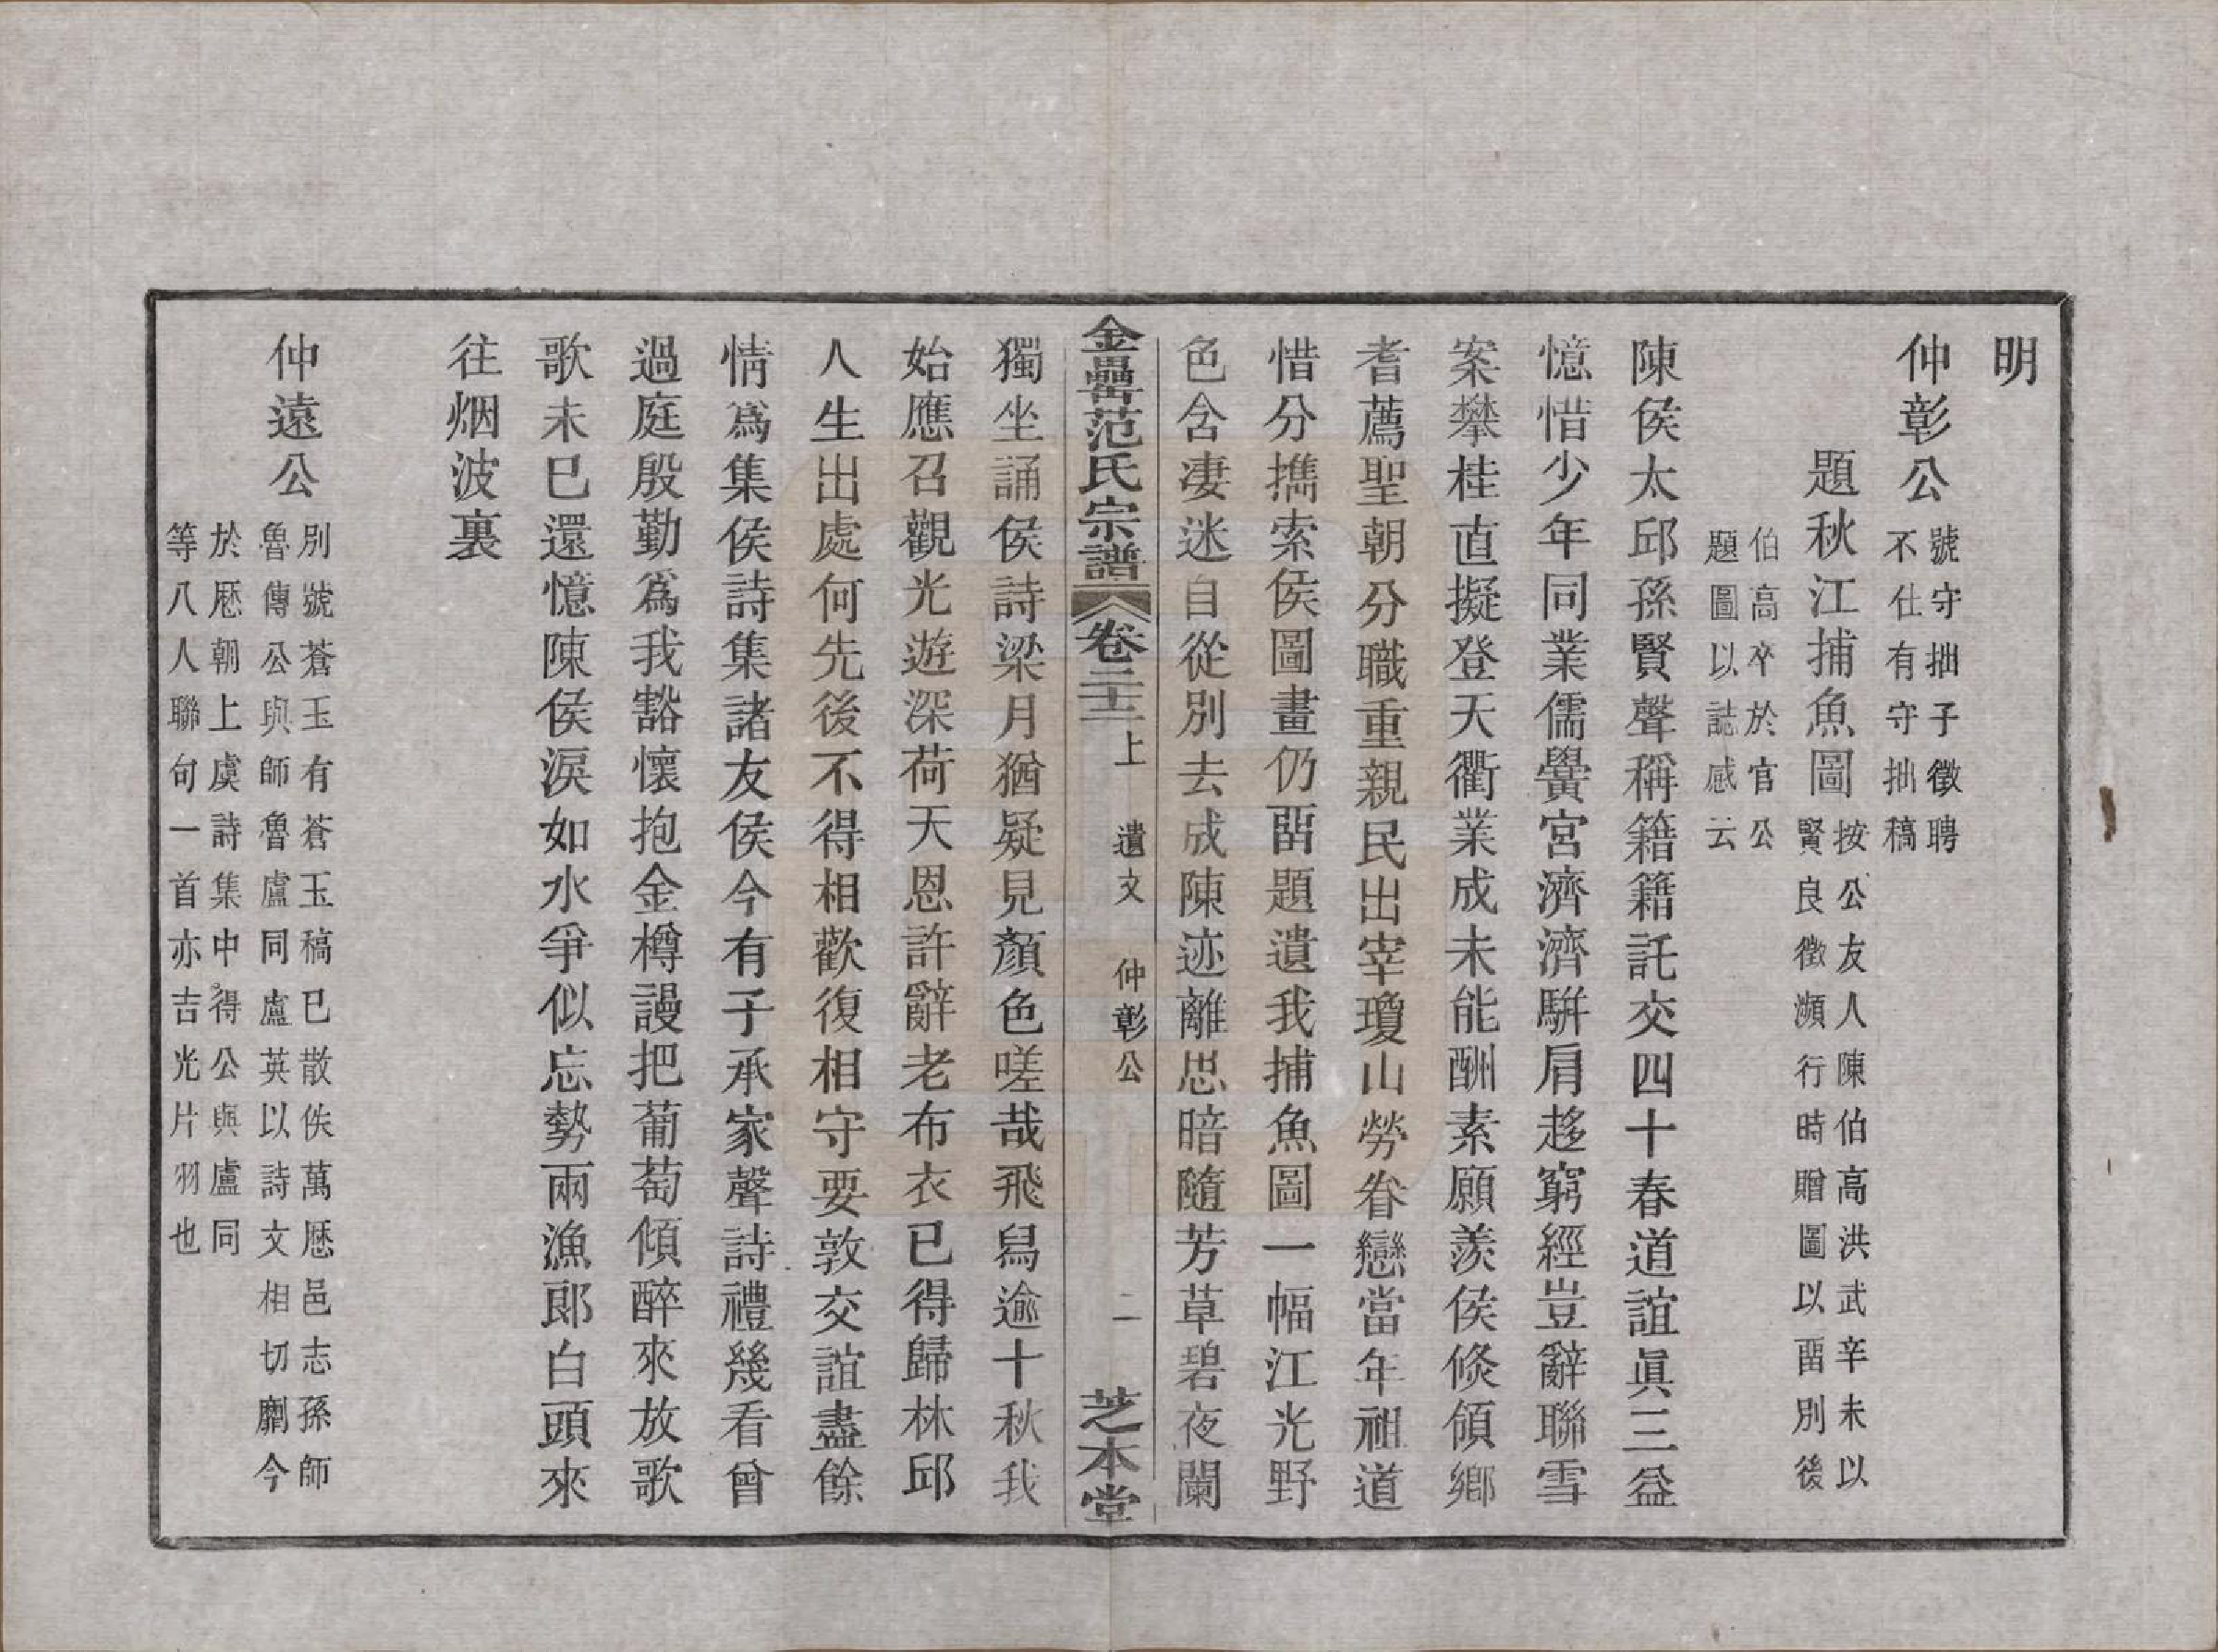 明
仲彰公
號守拙子徵聘
不仕有守拙稿
題秋江捕魚圖
按公友人陳伯高洪武辛未以
賢良徵瀕行時贈圖以畱別後
伯高卒於官公
題圖以誌感云
陳侯太邱孫賢聲稱籍籍託交四十春道誼眞三益
憶惜少年同業儒黌宮濟濟騈肩趍窮經豈辭聯雪
案攀桂直擬登天衢業成未能酬素願羨侯倐傾鄉
耆薦聖朝分職重親民出宰瓊山勞眷戀當年祖道
惜分擕索侯圖畫仍畱題遺我捕魚圖一幅江光野
色含凄迷自從別去成陳迹離思暗隨芳草碧夜闌
金罍范氏宗譜
卷二十二上 遺文 仲彰公 二 芝本堂
獨坐誦侯詩梁月猶疑見顏色嗟哉飛舄逾十秋我
始應召觀光遊深荷天恩許辭老布衣已得歸林邱
人生出處何先後不得相歡復相守要敦交誼盡餘
情爲集侯詩集諸友侯今有子承家聲詩禮幾看曾
過庭殷勤爲我豁懷抱金樽謾把葡萄傾醉來放歌
歌未已還憶陳侯淚如水爭似忘勢兩漁郎白頭來
往烟波裏
仲遠公
別號蒼玉有蒼玉稿已散佚萬厯邑志孫師
魯傳公與師魯盧同盧英以詩文相切劘今
於厯朝上虞詩集中得公與盧同
等八人聯句一首亦吉光片羽也